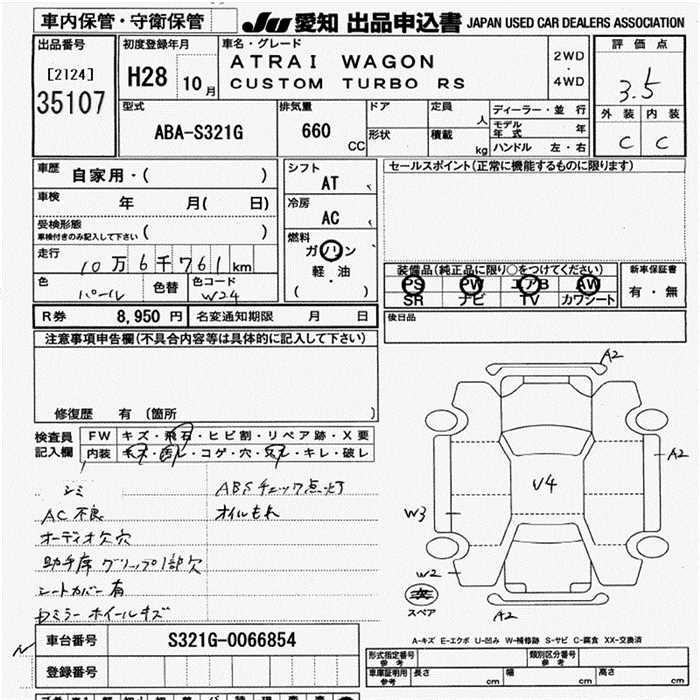 車内保管・守衛保管 JU 愛知 出品申込書 JAPAN USED CAR DEALERS ASSOCIATION
出品番号
[2124]
35107
初度登録年月
H28 10月
車名・グレード
ATRAI WAGON
CUSTOM TURBO RS
2WD
・
4WD
評価点
3.5
外装 内装
C C
型式
ABA-S321G
排気量
660
CC
ドア
形状
定員
人
積載
kg
ディーラー・並行
モデル年式 年
ハンドル 左・右
車歴 自家用・( )
車検 年 月( 日)
受検形態
車検付きのみ記入して下さい ( )
走行 10万6千761km
色 パール 色替 色コード W24
シフト
AT
冷房
AC
燃料
ガソリン
軽・油
( )
セールスポイント(正常に機能するものに限ります)
装備品(純正品に限り○をつけてください)
PS PW エアB AW
SR ナビ TV カワシート
新車保証書
有・無
R券 8,950円 名変通知期限 月 日
後日品
注意事項申告欄(不具合内容等は具体的に記入して下さい)
修復歴 有 (箇所 )
検査員記入欄
FW キズ・飛石・ヒビ割・リペア跡・X要
内装 キズ・汚レ・コゲ・穴・スレ・キレ・破レ
シミ
AC不良
オーディオ欠穴
助手席グリップ1部欠
シートカバー有
Dミラー ホイールキズ
ABSチェック点灯
オイルもれ
A2
A2
V4
W3
W2
A2
スペア
A-キズ E-エクボ U-凹み W-補修跡 S-サビ C-腐食 XX-交換済
車台番号 S321G-0066854
登録番号
形式指定番号
参考
類別区分番号
参考
車庫証明用
参考
長さ 幅 高さ
cm cm cm